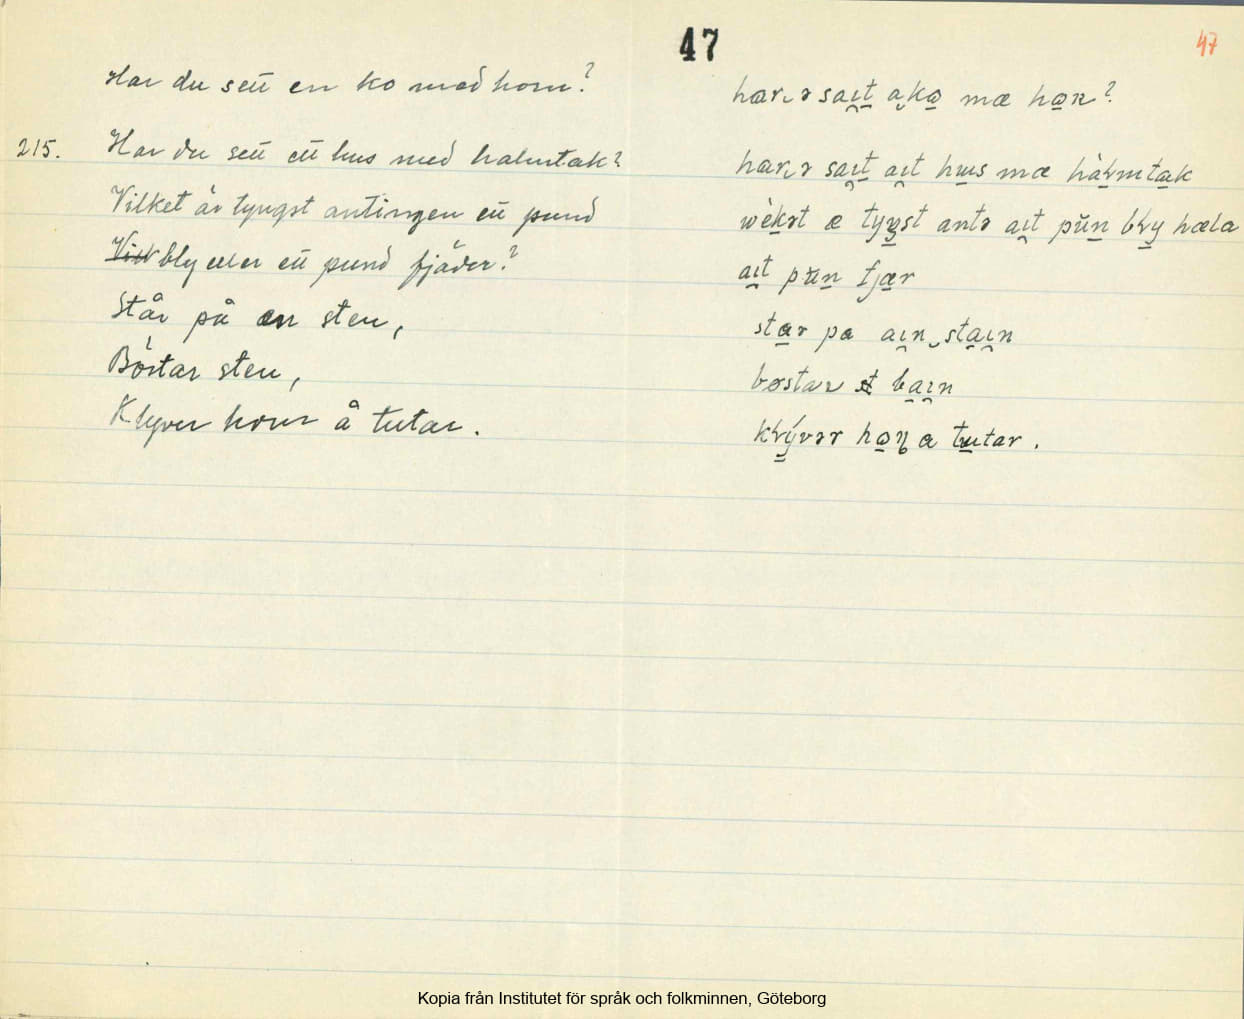 47
47
Har du sett en ko med horn?
215. Har du sett ett hus med halmtak?
Vilket är tyngst antingen ett pund
bly eller ett pund fjäder?
Står på en sten,
Börtar sten,
Klyver horn å tutar.
har, ɿ saıt a ko mæ hɷn?
har, ɿ saıt aıt hus mæ hàrmtak
wèkɿt æ tyŋst antɿ aıt pŭn bly hæla
aıt pŭn fjær
star pa aın staın
bostar baın
klývɿr hɷn a tutar.
Kopia från Institutet för språk och folkminnen, Göteborg